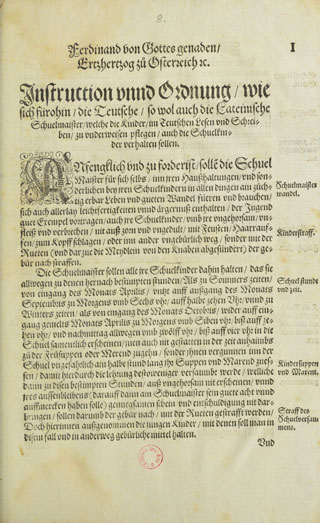 8.
Ferdinand von Gottes genaden /
Ertzhertzog zů Osterreich ꝛc.
I
Instruction vnnd Ordnung / wie
sich fürohin / die Teutsche / so wol auch die Lateinische
Schuelmaister / welche die Kinder / im Teutschen Lesen vnd Schrei-
ben / zu vnderweisen pflegen / auch die Schuelkin-
der verhalten sollen.
ANfengklich vnd zu forderist / sollē die Schuel
Maister für sich selbs / inn iren Haußhaltungen / vnd son-
derlichen bey iren Schuelkindern in allen dingen ain züch-
tig erbar Leben vnd gueten Wandel füeren vnd brauchen /
sich auch allerlay leichtfertigkeiten vnd ärgernuß enthalten / der Jugend
guet Exempel vortragen / auch ire Schuelkinder / vmb ire vngehorsam / vn-
fleiß vnd verbrechen / nit auß zorn vnd vngedult / mit Feusten / Haarrauf-
fen / zum Kopff schlagen / oder inn ander vngebürlich weg / sonder mit der
Rueten (vnd dar zu die Meydlem von den Knaben abgesündert) der ge-
bür nach straffen.
Schuelmaister
wandel.
Kinderstraff.
Die Schuelmaister sollen alle ire Schuelkinder dahin halten / das sie
allwegen zu denen hernach bestimpten stunden / Als zu Sommers zeiten /
von eingang des Monats Aprilis / vntz auff außgang des Monats
Septembris zu Morgens vmb Sechs vhr / auff halbe zehen Vhr / vnnd zu
Winters zeiten / als von eingang des Monats Octobris / wider auff ein-
gang gemelts Monats Aprilis zu Morgens vmb Siben vhr / biß auff ze-
hen vhr / vnd nachmittag allwegen vmb zwölff vhr / biß auff vier vhr in die
Schuel samentlich erscheinen / inen auch nit gestatten in der zeit anhaimbs
zu der Früsuppen oder Merend zugehn / sonder jhnen vergunnen in der
Schuel vngefahrlich ain halbe stund lang jhr Suppen vnd Marend zues-
sen / damit hierdurch die lehrung destoweniger versaumbt werde / welliche
dann zu disen bestimpten Stunden / auß vngehorsam nit erscheinen / vnnd
ires aussenbleibens (darauff dann ain Schuelmaister sein guete acht vnnd
auffmercken haben solle) genuegsamen schein vnd entschuldigung nit dar-
bringen / sollen darumb der gebür nach / mit der Rueten gestrafft werden /
Doch hierinnen außgenommen die jungen Kinder / mit denen soll man in
disem fall vnd in anderweg gebürliche mittel halten.
Schuel stundt
vnd zeit.
Kindersuppen
vnd Marent.
Straff des
Schuelversau-
mens.
Vnd